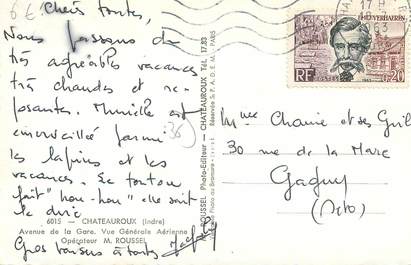 6 €
Chers toutes,
Nous passons de
très agréables vacances
très chaudes et re-
posantes. Murielle est
émerveillée parmi
les lapins et les
vacances. Le toutou
fait "hou-hou" elle sait
le dire
6015 — CHATEAUROUX (Indre)
Avenue de la Gare. Vue Générale Aérienne
Opérateur M. ROUSSEL
Gros baisers à toutes
36
ROUSSEL Photo-Editeur — CHATEAUROUX Tél. 17.83
Réservé S.P.A.D.E.M. - PARIS
17 H
VERHAEREN
RF
0,20
Mme Chaine et ses
30 rue de la Marc
Gagny